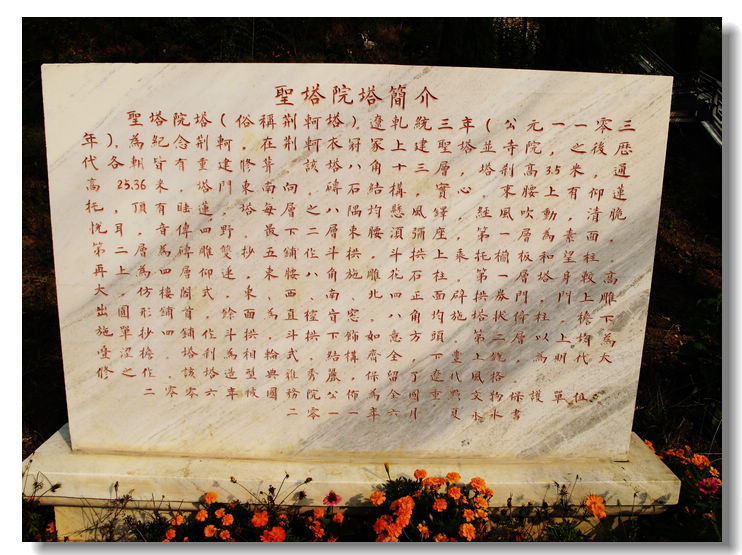 聖塔院塔簡介
聖塔院塔(俗稱荆軻塔),遼乾統三年(公元一一零三
年),為紀念荆軻,在荆軻衣冠冢建聖塔並寺院,之後歷
代各朝皆有重建修葺,該塔八角十三層,塔刹高3.5米,通
高25.36米,塔門東南向,磚石結構,實心,束腰上有仰蓮
托,頂有睡蓮,塔每層之隅均懸風鐸,經風吹動,清脆
悦耳,音傳四野,最下八層束腰須彌座,第一層為素面,
第二層為磚雕雙抄五鋪作斗拱,乘托欄板和望柱.
再上為四層仰蓮,束腰八角施雕花石柱,第一塔身較高
大,仿樓閣式,東、西、南、北四正面辟拱券門,門上雕
出圓形鋪首,餘面直窓,八角均施倚柱,檐下
施單抄四鋪作斗拱,如意方頭,第二層以上均為
叠澀檐,塔刹為輪式,下重上為明代
修作.該塔造型典雅秀麗,保留全遼代風格.
二零零六年被國務院公佈為全國重點文物保護單位
二零一一年六月 夏永永書